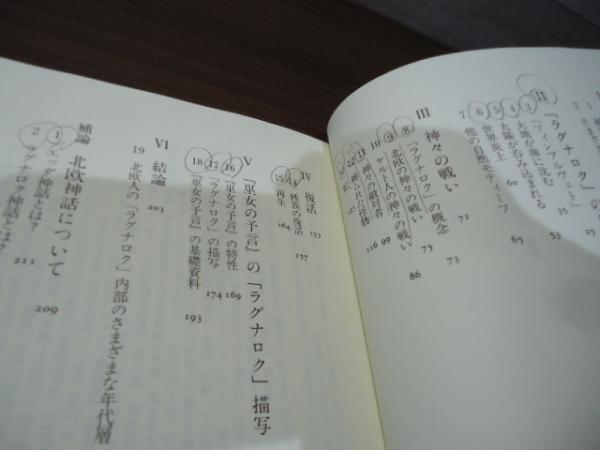 II 「ラグナロク」の
3 「フィンブルヴェト」 25
4 大地が海に沈む 35
5 太陽が呑み込まれる 53
6 世界炎上 60
7 他の自然モティーフ 65
III 神々の戦い 73
8 「ラグナロク」の概念 71
9 北欧の神々の戦い 75
10 ケルト人の神々の戦い 86
11 神々の敵対者 99
12 縛られた怪物 116
IV 復活 155
14 種族の復活 157
15 再生 164
V 『巫女の予言』の「ラグナロク」描写
16 『巫女の予言』の特性 169
17 「ラグナロク」の描写 174
18 『巫女の予言』の基礎資料 193
VI 結論 203
19 北欧人の「ラグナロク」内部のさまざまな年代層
補論 北欧神話について 209
1 エッダ神話とは? 211
2 ラグナロク神話とは?